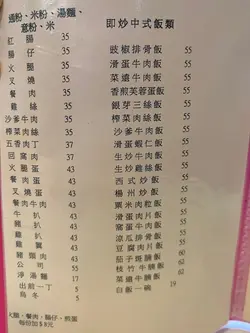 通粉、米粉、湯麵、
意粉、米
紅腸仔 35
火腿 35
叉燒 35
餐肉 35
雞絲 35
沙爹牛肉 35
榨菜肉絲 35
五香肉丁 37
回窩肉 37
火腿蛋 43
餐肉蛋 43
叉燒蛋 43
餐肉牛肉 43
牛扒 43
豬扒 43
雞扒 43
雞翼 43
豬頸肉 43
公司 55
淨湯麵 17
出前一丁 5
烏冬 5
火腿、餐肉、腸仔、煎蛋
每份加 $ 8元
即炒中式飯類
豉椒排骨飯 55
滑蛋牛肉飯 55
菜遠牛肉飯 55
香煎芙蓉蛋飯 55
銀芽三絲飯 55
榨菜肉絲飯 55
沙爹牛肉飯 55
滑蛋蝦仁飯 55
生炒牛肉飯 55
生炒雞絲飯 55
西式炒飯 55
楊州炒飯 55
粟米肉粒飯 55
滑蛋肉片飯 55
富蛋肉片飯 55
涼瓜排骨飯 55
豆腐肉片飯 55
茄子燒腩飯 60
枝竹牛腩飯 62
菜遠牛腩飯 62
白飯一碗 19